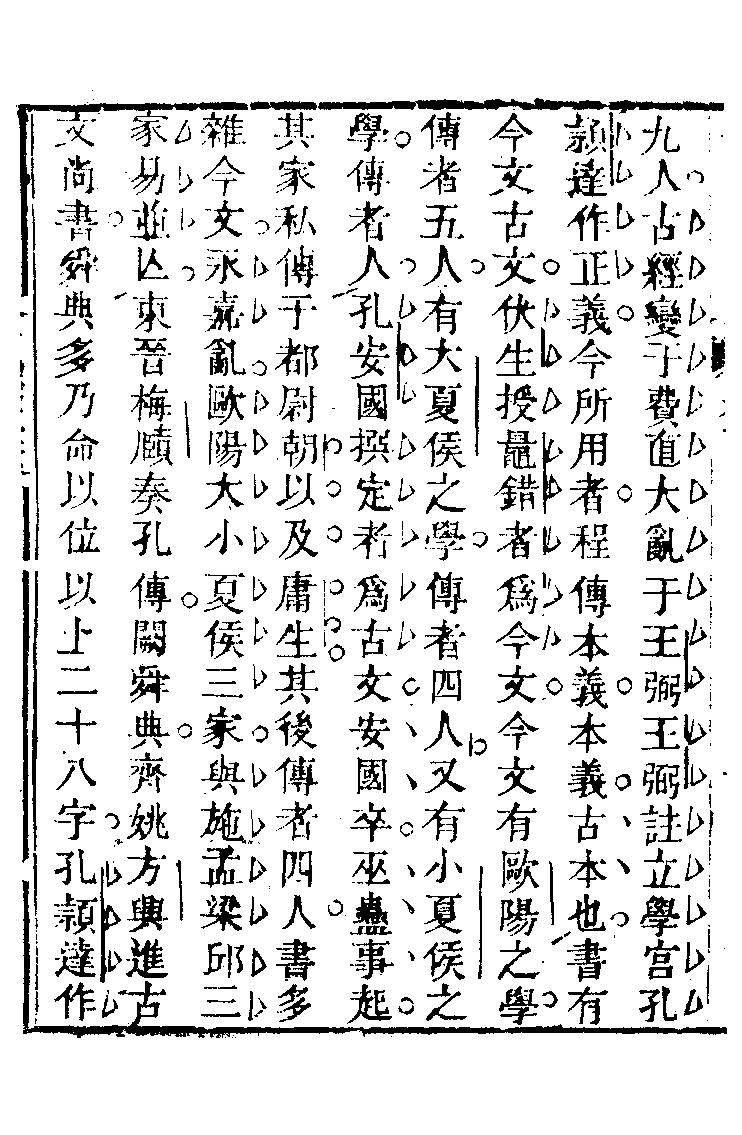 九人古經變于費直大亂于王弼王弼註立學宫孔
穎達作正義今所用者程傳本義本義古本也書有
今文古文伏生授鼂錯者爲今文今文有歐陽之學
傳者五人有大夏侯之學傳者四人又有小夏侯之
學傳者人孔安國撰定者爲古文安國卒巫蠱事起
其家私傳于都尉朝以及庸生其後傳者四人書多
雜今文永嘉亂歐陽大小夏侯三家與施孟梁邱三
家易並亾東晉梅頤奏孔傳闕舜典齊姚方輿進古
文尚書舜典多乃命以位以上二十八字孔穎達作